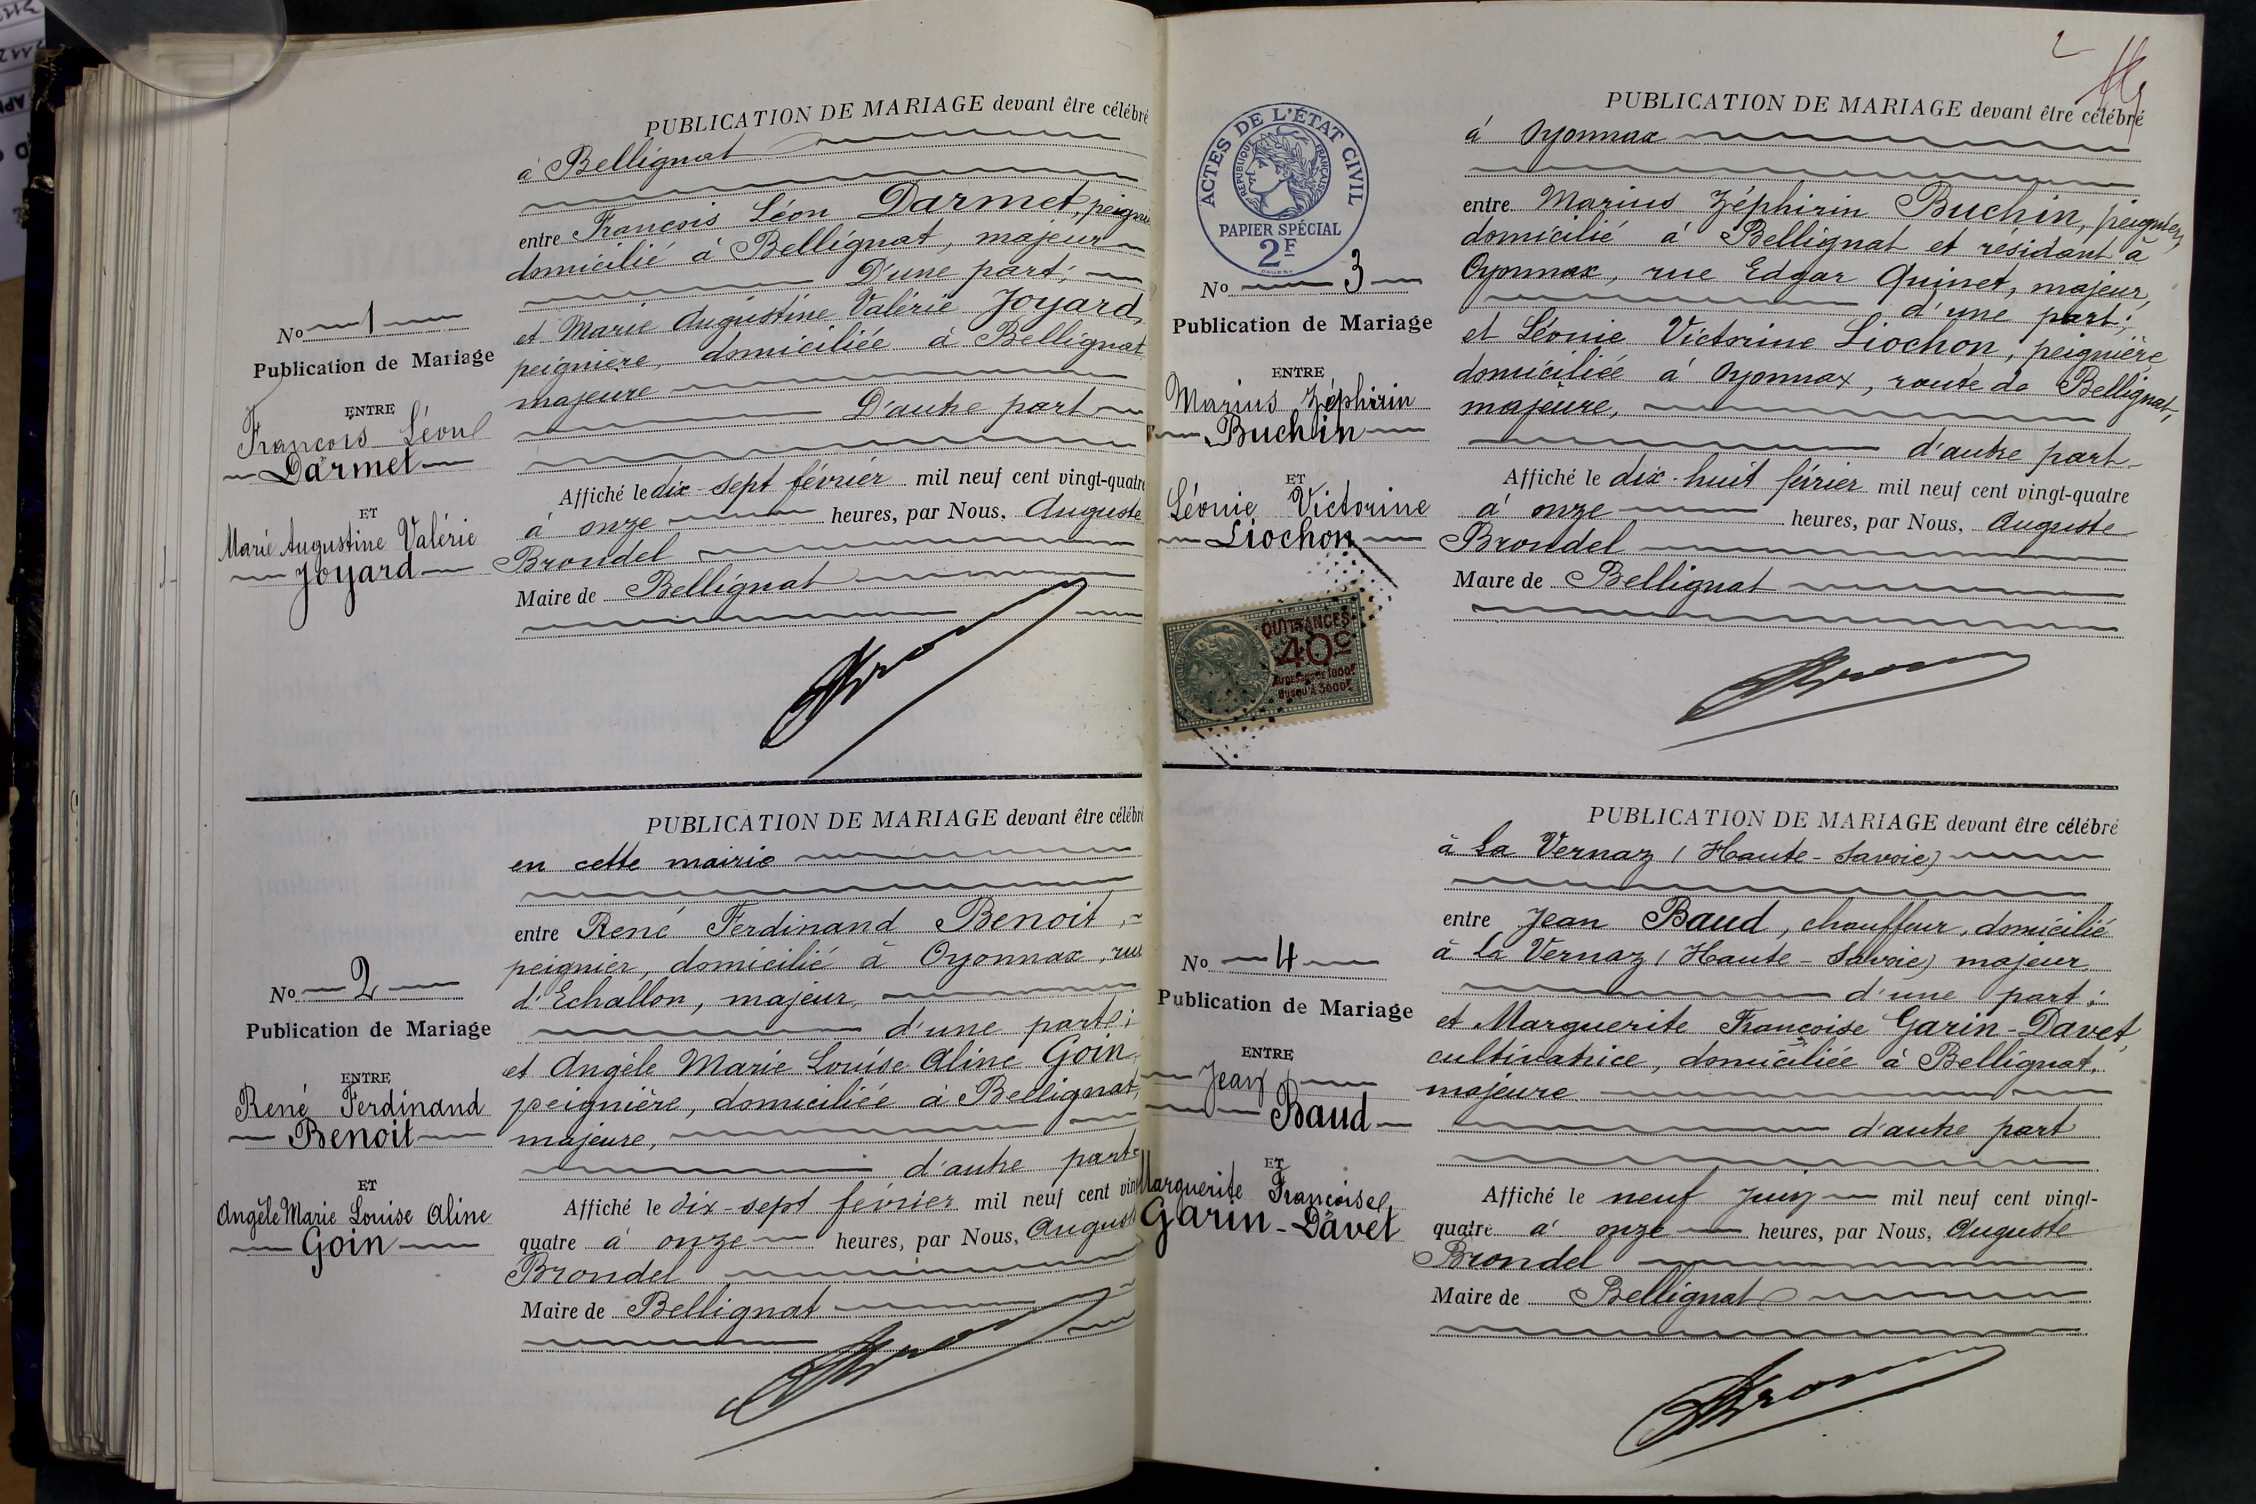 PUBLICATION DE MARIAGE devant être célébré
à Bellignat
entre François Léon Darmet, peignier
domicilié à Bellignat, majeur
D'une part;
et Marie Augustine Valérie Joyard,
peignière, domiciliée à Bellignat
majeure
D'autre part
Affiché le dix-sept février mil neuf cent vingt-quatre
à onze heures, par Nous, Auguste
Brondel
Maire de Bellignat
No 1
Publication de Mariage
ENTRE
François Léon
Darmet
ET
Marie Augustine Valérie
Joyard
PUBLICATION DE MARIAGE devant être célébré
en cette mairie
entre René Ferdinand Benoit,
peignier, domicilié à Oyonnax, rue
d'Echallon, majeur,
d'une part;
et Angèle Marie Louise Aline Goin
peignière, domiciliée à Bellignat,
majeure,
d'autre part
Affiché le dix-sept février mil neuf cent vingt
quatre à onze heures, par Nous, Auguste
Brondel
Maire de Bellignat
No 2
Publication de Mariage
ENTRE
René Ferdinand
Benoit
ET
Angèle Marie Louise Aline
Goin
2
ACTES DE L'ÉTAT CIVIL
RÉPUBLIQUE FRANÇAISE
PAPIER SPÉCIAL
2F
PUBLICATION DE MARIAGE devant être célébré
à Oyonnax
entre Marius Zéphirin Buchin, peignier,
domicilié à Bellignat et résidant à
Oyonnax, rue Edgar Quinet, majeur,
d'une part;
et Léonie Victorine Liochon, peignière
domiciliée à Oyonnax, route de Bellignat,
majeure,
d'autre part
Affiché le dix-huit février mil neuf cent vingt-quatre
à onze heures, par Nous, Auguste
Brondel
Maire de Bellignat
No 3
Publication de Mariage
ENTRE
Marius Zéphirin
Buchin
ET
Léonie Victorine
Liochon
QUITTANCES
40c
JUSQU'À 3000F
PUBLICATION DE MARIAGE devant être célébré
à La Vernaz (Haute-Savoie)
entre Jean Baud, chauffeur, domicilié
à La Vernaz (Haute-Savoie) majeur
d'une part;
et Marguerite Françoise Garin-Davet,
cultivatrice, domiciliée à Bellignat,
majeure
d'autre part
Affiché le neuf Juin mil neuf cent vingt-
quatre à onze heures, par Nous, Auguste
Brondel
Maire de Bellignat
No 4
Publication de Mariage
ENTRE
Jean
Baud
ET
Marguerite Françoise
Garin-Davet